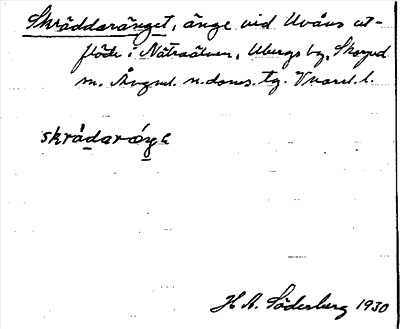 Skräddaränget, änge vid Uvåns ut-
flöde i Nätraälven, Ubergs by, Skorped
m. Ångml. n. doms. tg. Vnorrl. l.
skrádaráŋe
H. A. Söderberg 1930